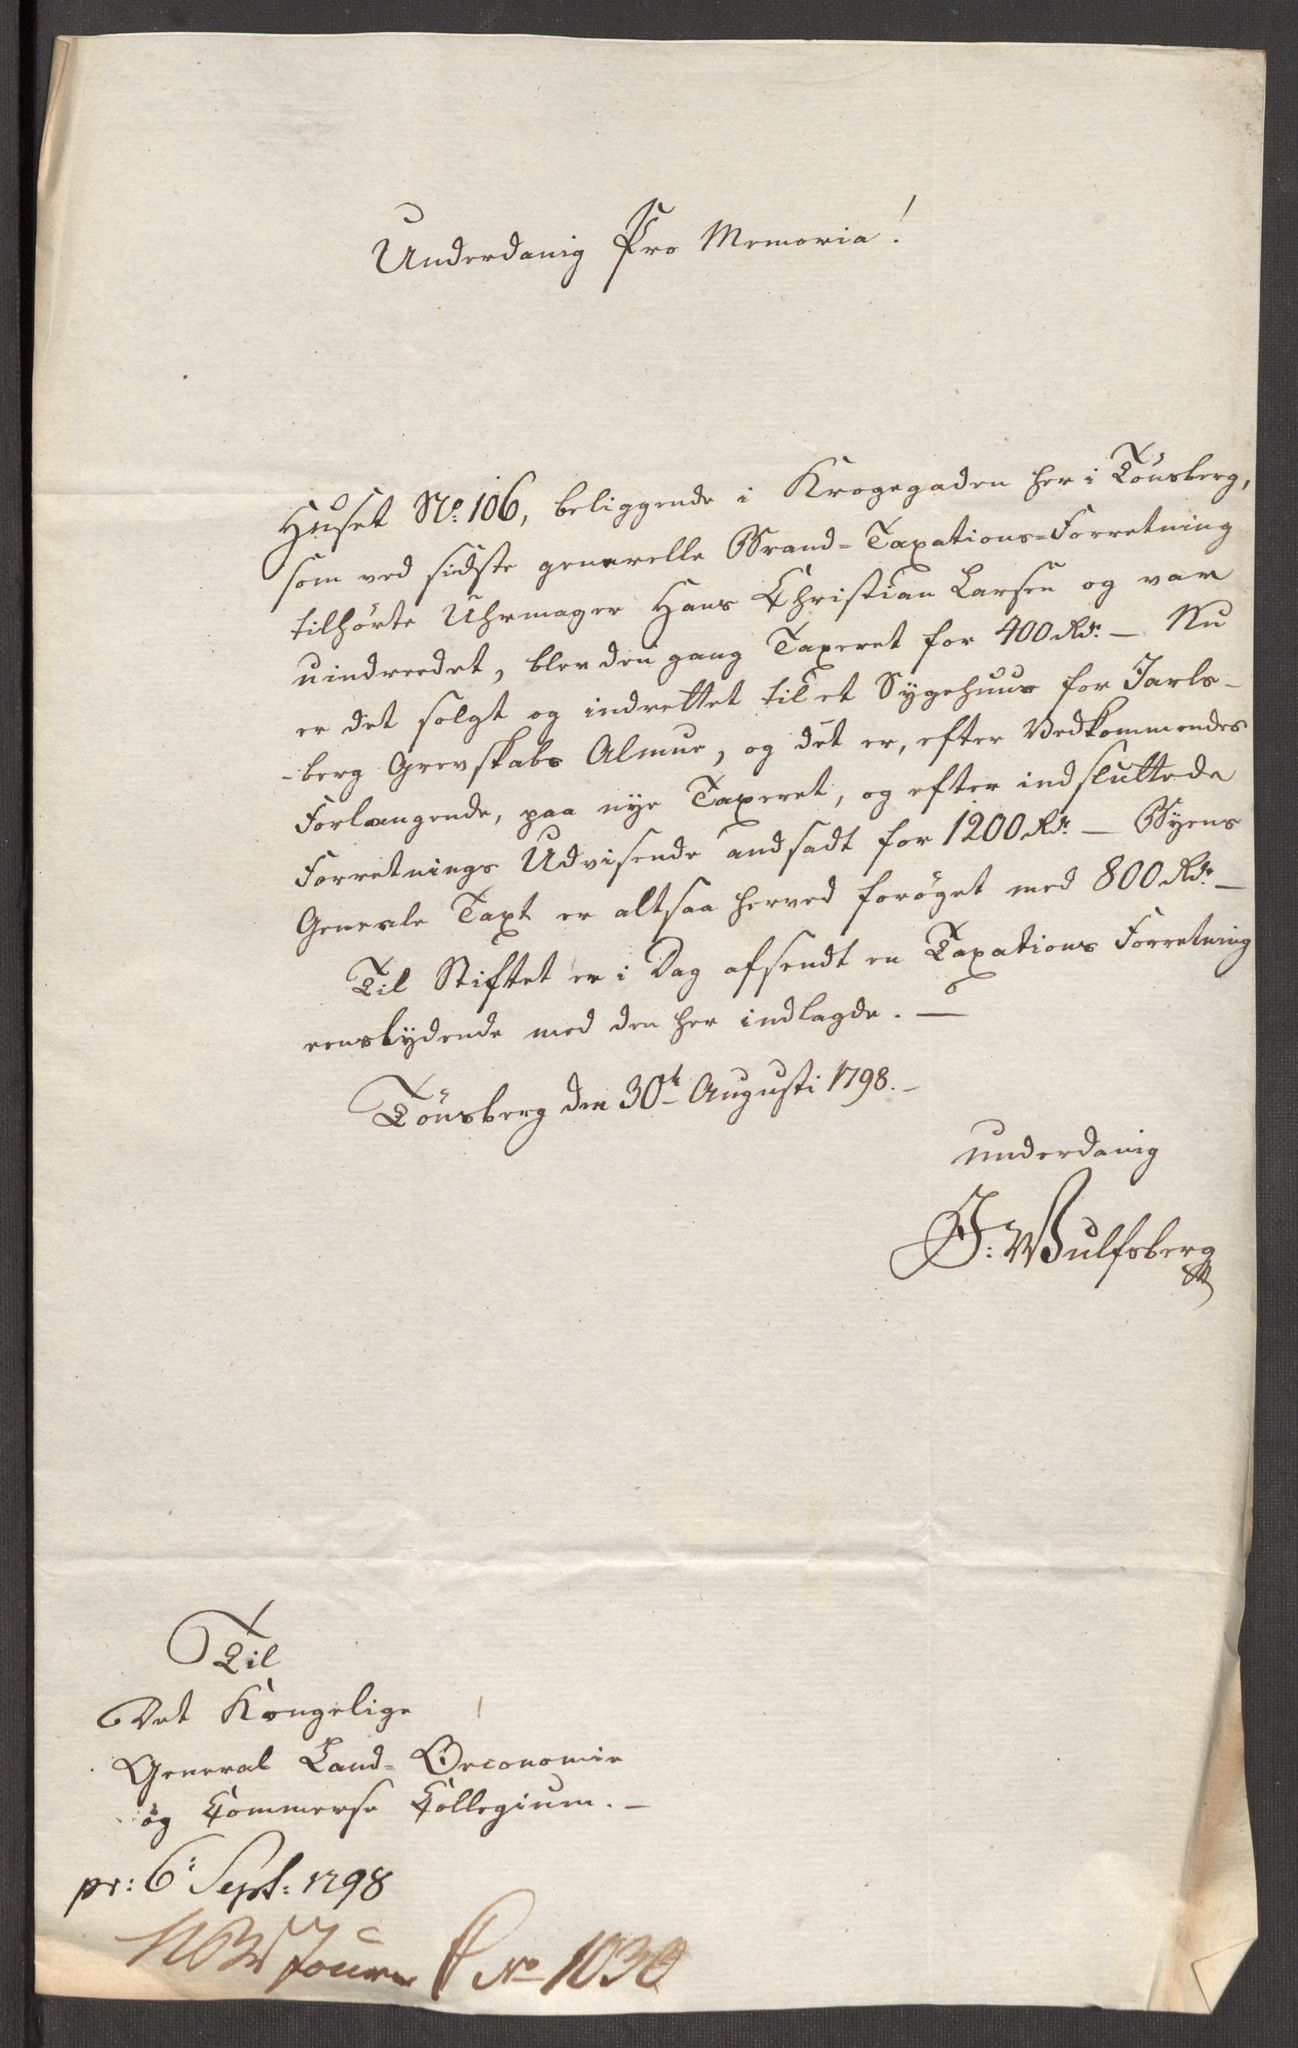 Underdanig Pro Memoria!
Huset No: 106, beliggende i Krogegaden her i Tönsberg,
som ved sidste generelle Brand-Taxations-Forretning
tilhörte Uhrmager Hans Christian Larsen og var
uindreedet, blev den gang Taxeret for 400 Rdr: — Nu
er det solgt og indrettet til et Sygehuus for Jarls-
-berg Grevskabs Almue, og det er, efter Vedkommendes
Forlangende, paa nye Taxeret, og efter indsluttede
Forretnings Udvisende andsadt for 1200 Rdr. — Byens
Generale Taxt er altsaa herved forøget med 800 Rdr. —
Til Stiftet er i Dag afsendt en Taxations Forretning
eenslydende med den her indlagde. —
Tönsberg den 30te Augusti 1798. —
underdanig
J: Wulfsberg
Til
Det Kongelige
General Land- Oeconomie
og Commerse Collegium. —
pr: 6: Sept: 1798
Journ No 1030